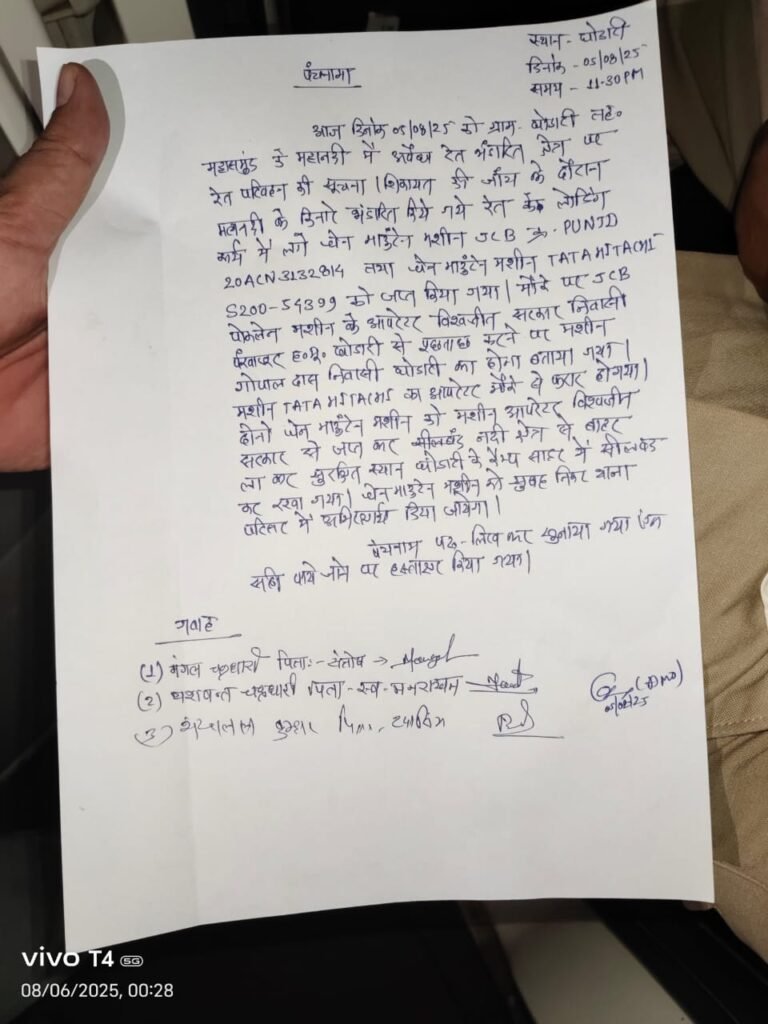 स्थान - घोडारी
दिनांक - 05/08/25
समय - 11-30 PM
पंचनामा
आज दिनांक 05/08/25 को ग्राम - घोडारी तह०
महासमुंद के महानदी में अवैध रेत भंडारित क्षेत्र पर
रेत परिवहन की सूचना / शिकायत की जाँच के दौरान
महानदी के किनारे भंडारित किये गये रेत लोडिंग
कार्य में लगे चेन माउंटेन मशीन JCB क्र. PUNJD
20ACN3132814 तथा चेन माउंटेन मशीन TATA HITACHI
S200-54399 को जप्त किया गया। मौके पर JCB
पोकलेन मशीन के आपरेटर विश्वजीत सरकार निवासी
ह०मु० घोडारी से पूछताछ करने पर मशीन
गोपाल दास निवासी घोडारी का होना बताया गया।
मशीन TATA HITACHI का आपरेटर मौके से फरार होगया।
दोनो चेन माउंटेन मशीन को मशीन आपरेटर विश्वजीत
सरकार से जप्त कर सीलबंद नदी क्षेत्र से बाहर
ला कर सुरक्षित स्थान घोडारी के रैम्प साइट में सीलबंद
कर रखा गया। चेन माउंटेन मशीन को सुबह निकट थाना
परिसर में अभिरक्षार्थ दिया जायेगा।
पंचनामा पढ़-लिख कर सुनाया गया एवं
सही पाये जाने पर हस्ताक्षर किया गया।
गवाह
(1) मंगल चक्रधारी पिता:- संतोष →
(2) यशवन्त चक्रधारी पिता - स्व. मनराखन
(3) कुम्हार पिता.
(DMO)
05/08/25
vivo T4 5G
08/06/2025, 00:28